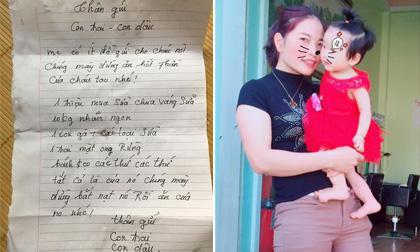 Thân gửi
Con trai - con dâu
mẹ có ít đồ gửi cho cháu nội
Chúng mày đừng ăn hết phần
của cháu tao nhé!
1 triệu mua sữa chua váng sữa
10kg nhãn ngon
1 con gà + các loại sữa
1 chai mật ong Rừng
bánh kẹo các thứ các thứ
tất cả là của nó chúng mày
đừng bắt nạt nó Rồi ăn của
nó nhé!
thân gửi
Con trai
Con dâu